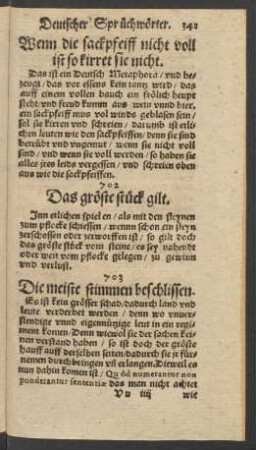 Deutscher Sprüchwörter. 342
Wenn die sackpfeiff nicht voll
ist so kirret sie nicht.
Das ist ein Deutsch Metaphora / vnd be-
zeugt / das vor essens kein tantz wird / das
auff einem vollen bauch ein frölich heupt
steht / vnd freud kumm aus wein vnnd bier.
ein sackpfeiff mus vol winds geblasen sein /
sol sie kirren vnd schreien / darumb ist etli-
chen leuten wie den sackpfeiffen / denn sie sind
betrübt vnd vngemut / wenn sie nicht voll
sind / vnd wenn sie voll werden / so haben sie
alles jres leids vergessen / vnd schreien oben
aus wie die sackpfeiffen.
702
Das gröste stück gilt.
Inn etlichen spielen / als mit den steynen
zum pflocke schiessen / wenn schon ein steyn
zerschossen oder zerworffen ist / so gilt doch
das gröste stück vom steine / es sey nahendt
oder weit vom pflocke gelegen / zu gewinn
vnd verlust.
703
Die meiste stimmen beschliessen.
ist kein grösser schad / dadurch land vnd
leute verderbet werden / denn wo vnuer-
stendige vnnd eigennützige leut in ein regi-
ment komen. Denn wiewol sie der sachen kei-
nen verstand haben / so ist doch der gröste
hauff auff derselben seiten dadurch sie jr für-
nemen durchbringen vñ erlangen. Dieweil es
nun dahin komen ist / Quòd numerantur non
ponderantur sententiæ das man nicht achtet
Vv iiij wie